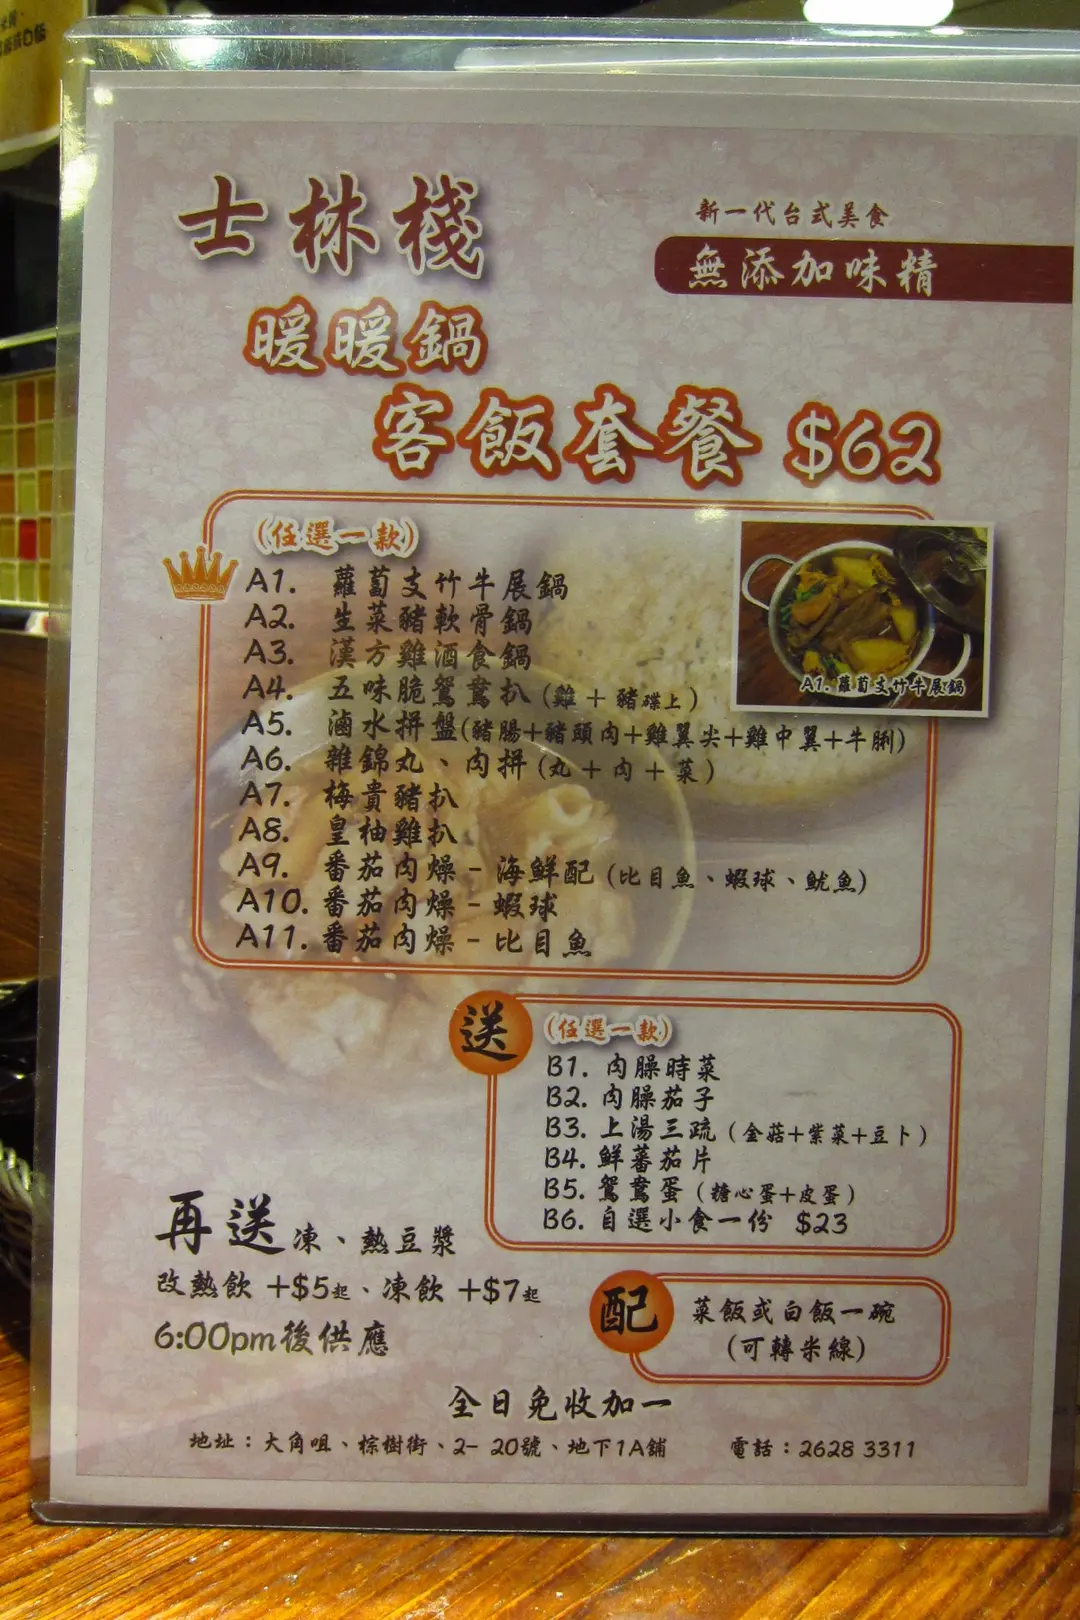 士林棧
新一代台式美食
無添加味精
暖暖鍋
客飯套餐 $62
(任選一款)
A1. 蘿蔔支竹牛展鍋
A2. 生菜豬軟骨鍋
A3. 漢方雞酒食鍋
A4. 五味脆鴛鴦扒 (雞 + 豬碟上)
A5. 滷水拼盤(豬腸+豬頭肉+雞翼尖+雞中翼+牛脷)
A6. 雜錦丸、肉拼 (丸 + 肉 + 菜)
A7. 梅貴豬扒
A8. 皇柚雞扒
A9. 番茄肉燥 - 海鮮配 (比目魚、蝦球、魷魚)
A10. 番茄肉燥 - 蝦球
A11. 番茄肉燥 - 比目魚
A1. 蘿蔔支竹牛展鍋
送
(任選一款)
B1. 肉臊時菜
B2. 肉臊茄子
B3. 上湯三疏 (金菇+紫菜+豆卜)
B4. 鮮蕃茄片
B5. 鴛鴦蛋 (糖心蛋+皮蛋)
B6. 自選小食一份 $23
再送凍、熱豆漿
改熱飲 +$5起、凍飲 +$7起
6:00pm後供應
配
菜飯或白飯一碗
(可轉米線)
全日免收加一
地址：大角咀、棕樹街、2- 20號、地下1A舖
電話：2628 3311